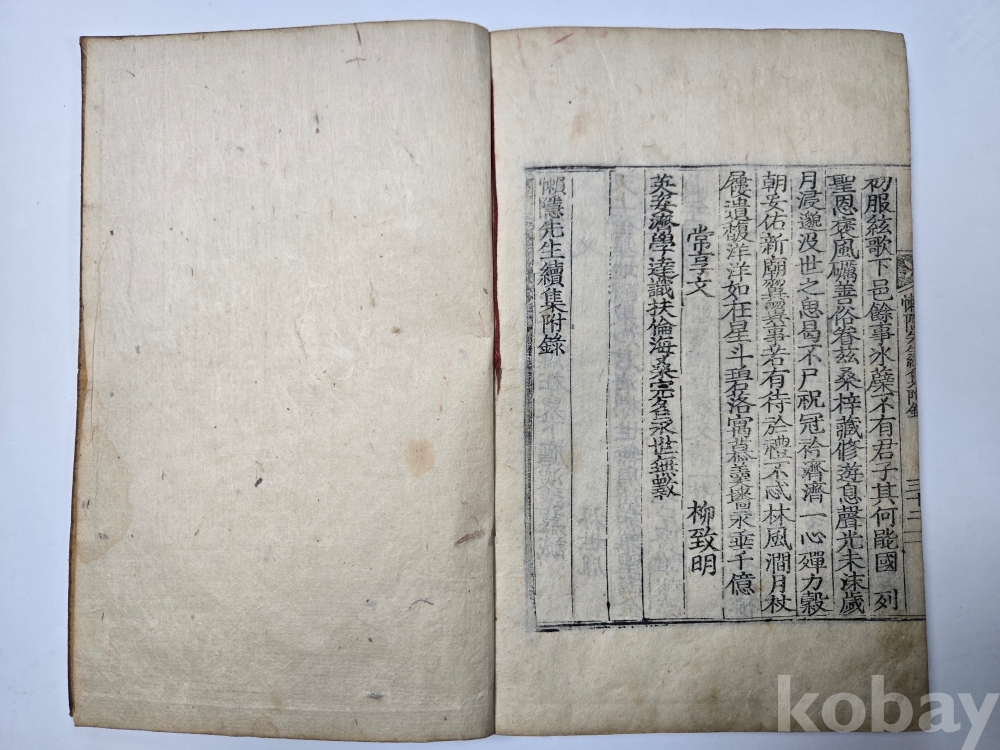 懶隱先生續集附錄 三十二
初服絃歌下邑餘事水蘗不有君子其何能國 列
聖恩褒風礪善俗眷茲桑梓藏修遊息聲光未沫歲
月浸邈沒世之思曷不尸祝冠衿濟濟一心殫力穀
朝妥侑新廟翼翼事若有待於禮不忒林風澗月杖
屨遺馥洋洋如在星斗碧落寓慕羹墻永垂千億
常享文 柳致明
英姿濟學達識扶倫海桑完名永世無斁
懶隱先生續集附錄
kobay